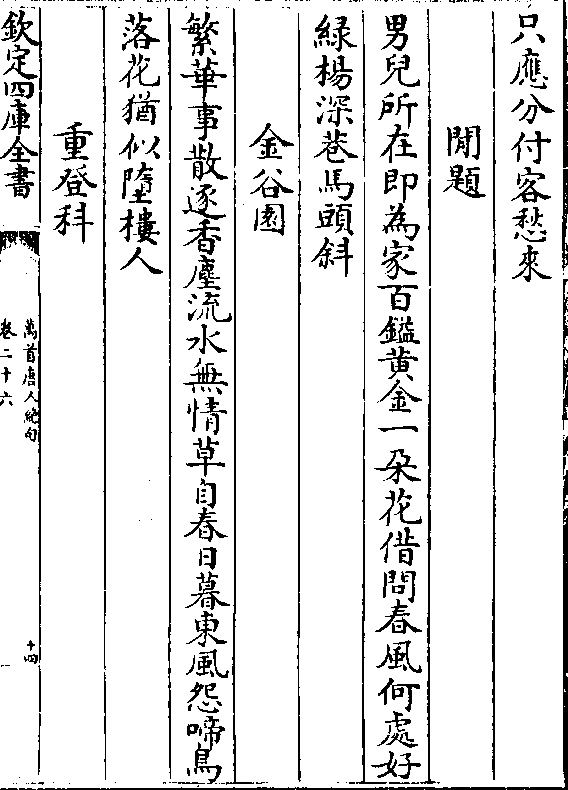 只應分付客愁來
閒題
男兒所在即為家百鎰黄金一朶花借問春風何處好
緑楊深巷馬頭斜
金谷園
繁華事散逐香塵流水無情草自春日暮東風怨啼鳥
落花猶似墮樓人
重登科
欽定四庫全書
萬首唐人絶句
卷二十六
十四